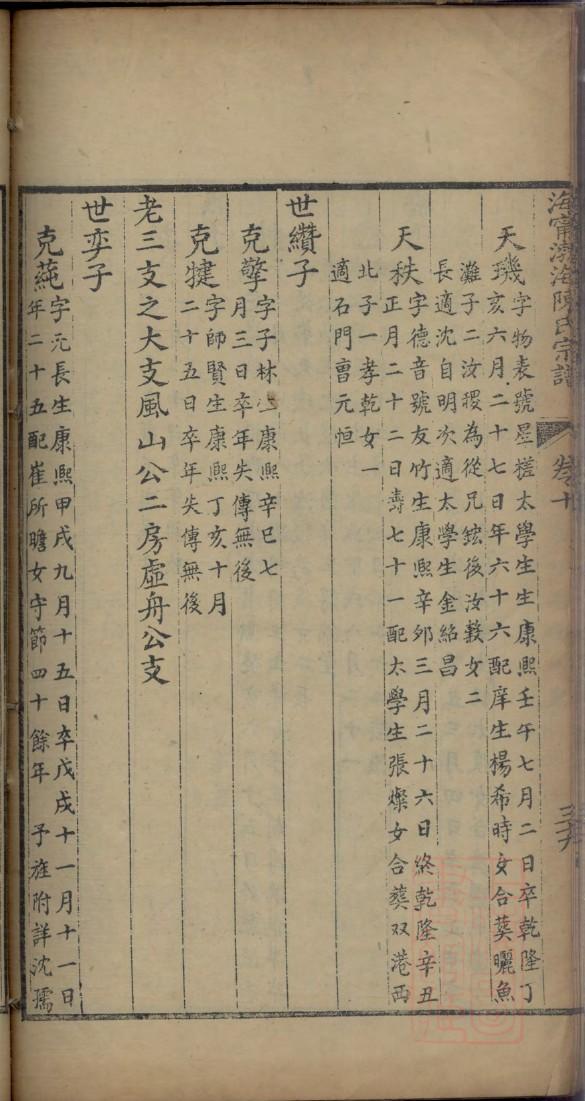 海甯渤海陳氏宗譜
卷十
三六
天璣
字物表號星槎太學生生康熙壬午七月二日卒乾隆丁
亥六月二十七日年六十六配庠生楊希時女合葬曬魚
灘子二汝稷為從兄鋐後汝穀女二
長適沈自明次適太學生金紹昌
天秩
字德音號友竹生康熙辛卯三月二十六日終乾隆辛丑
正月二十二日壽七十一配太學生張燦女合葬双港西
北子一孝乾女一
適石門曺元恒
世纘子
克擎
字子林生康熙辛巳七
月三日卒年失傳無後
克㨗
字師賢生康熙丁亥十月
二十五日卒年失傳無後
老三支之大支風山公二房虛舟公支
世弈子
克蒓
字元長生康熙甲戌九月十五日卒戊戌十一月十一日
年二十五配崔所瞻女守節四十餘年 予旌附詳沈孺